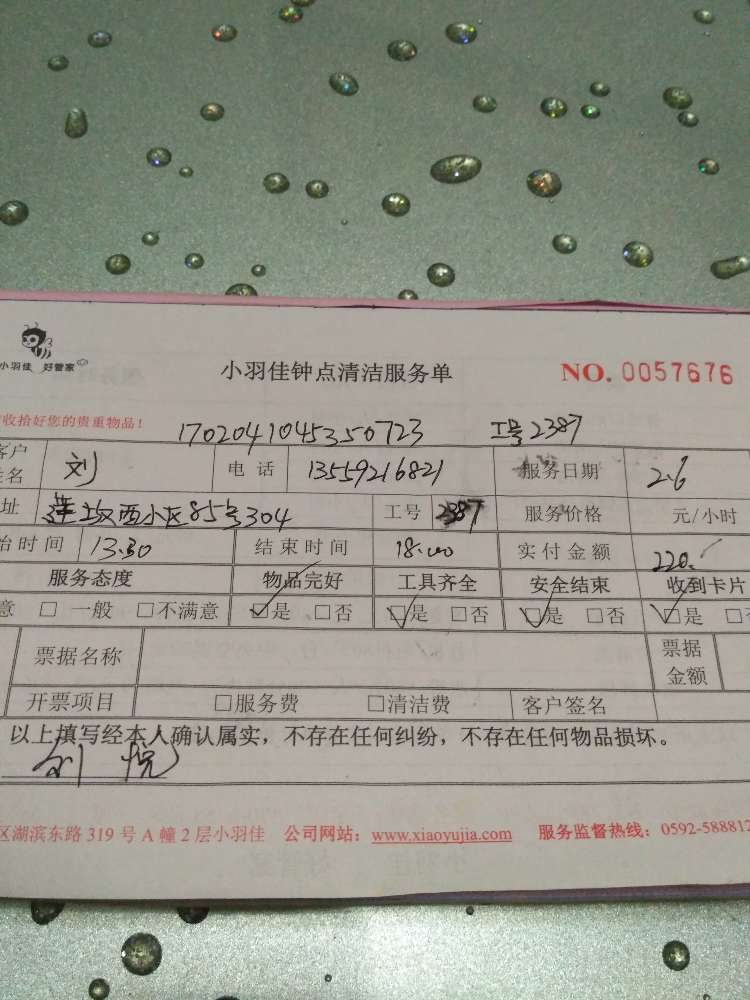 小羽佳 好管家
小羽佳钟点清洁服务单 NO. 0057676
收拾好您的贵重物品！
1702041045350723 工号2387
客户姓名 刘 电话 13559216821 服务日期 2.6
址 莲坂西小区85号304 工号 2387 服务价格 元/小时
始时间 13.30 结束时间 18.00 实付金额 220.
服务态度 物品完好 工具齐全 安全结束 收到卡片
意 □ 一般 □不满意 ☑是 □否 ☑是 □否 ☑是 □否 ☑是 □
票据名称 票据金额
开票项目 □服务费 □清洁费 客户签名
以上填写经本人确认属实，不存在任何纠纷，不存在任何物品损坏。
刘悦
区湖滨东路 319 号 A 幢 2 层小羽佳 公司网站：www.xiaoyujia.com 服务监督热线：0592-588812